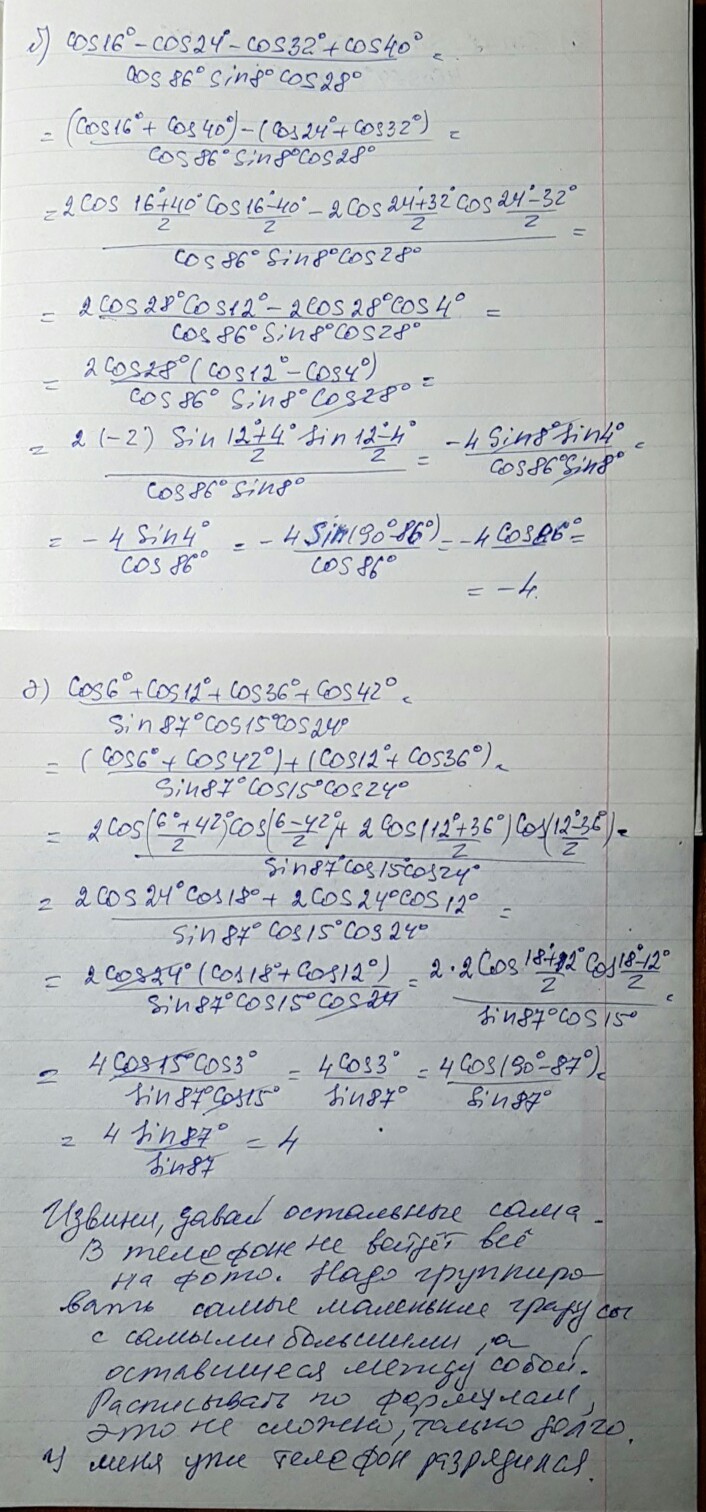 б) cos16° - cos24° - cos32° + cos40° / cos86° sin8° cos28° =
= (cos16° + cos40°) - (cos24° + cos32°) / cos86° sin8° cos28° =
= 2cos 16°+40°/2 cos 16°-40°/2 - 2cos 24°+32°/2 cos 24°-32°/2 / cos86° sin8° cos28° =
= 2cos28°cos12° - 2cos28°cos4° / cos86° sin8° cos28° =
= 2cos28°(cos12° - cos4°) / cos86° sin8° cos28° =
= 2(-2) sin 12°+4°/2 sin 12°-4°/2 / cos86° sin8° = -4 sin8° sin4° / cos86° sin8° =
= - 4 sin4° / cos86° = - 4 sin(90°-86°) / cos86° = -4 cos86° =
= -4.
д) cos6° + cos12° + cos36° + cos42° / sin87° cos15° cos24° =
= (cos6° + cos42°) + (cos12° + cos36°) / sin87° cos15° cos24° =
= 2cos(6°+42°/2)cos(6-42°/2) + 2cos(12°+36°/2)cos(12°-36°/2) / sin87° cos15° cos24° =
= 2cos24° cos18° + 2cos24° cos12° / sin87° cos15° cos24° =
= 2cos24° (cos18° + cos12°) / sin87° cos15° cos24 = 2·2cos 18°+12°/2 cos 18°-12°/2 / sin87° cos15° =
= 4cos15° cos3° / sin87° cos15° = 4cos3° / sin87° = 4cos(90°-87°) / sin87° =
= 4 sin87° / sin87 = 4
Извини, давай остальные сама.
В телефоне не войдёт всё
на фото. Надо группиро-
вать самые маленькие градусы
с самыми большими, а
оставшиеся между собой.
Расписывать по формулам,
это не сложно, только долго.
У меня уже телефон разрядился.